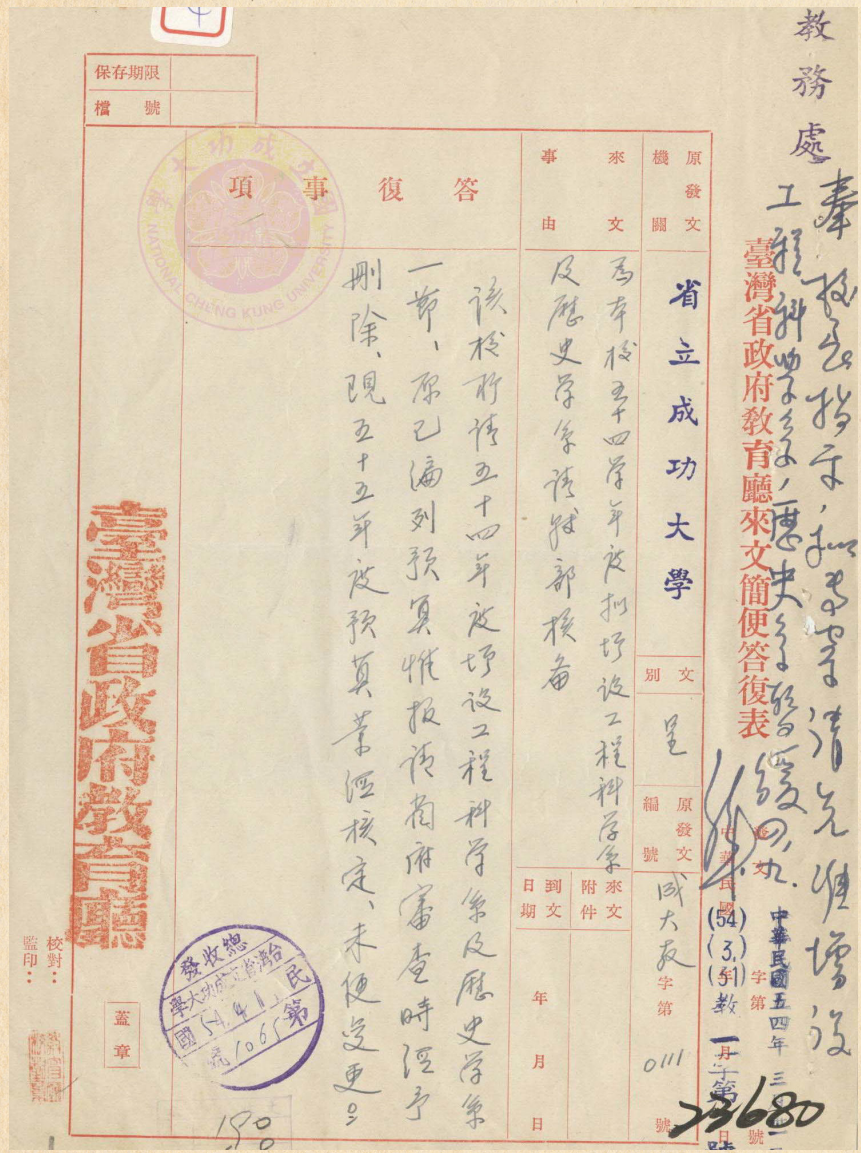 教務處
奉校長指示，擬專案請先准增設
工程科學系，歷史系暫緩
四、九.
臺灣省政府教育廳來文簡便答復表
中華民國五四年三月
(54)(3.)(31)教一字第23680號
原發文機關
省立成功大學
文別
呈
原發文編號
成大教字第0111號
來文事由
為本校五十四学年度拟增设工程科学系
及歷史学系请转部核备
來文附件
到文日期
年月日
答復事項
该校所请五十四年度增设工程科学系及歷史学系
一節、原已编列预算惟报请省府審查時经予
删除、現五十五年度预算業经核定、未便变更。
保存期限
檔號
國立成功大學
NATIONAL CHENG KUNG UNIVERSITY
臺灣省政府教育廳
總收發
台灣省立成功大學
民國54.4.1.
第1065號
蓋章
校對：
監印：
190